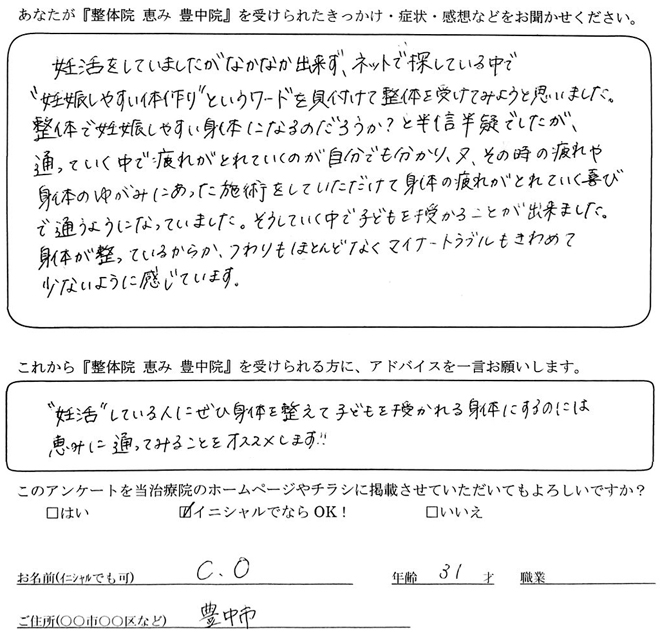 あなたが『整体院 恵み 豊中院』を受けられたきっかけ・症状・感想などをお聞かせください。
妊活をしていましたがなかなか出来ず、ネットで探している中で
"妊娠しやすい体作り"というワードを見付けて整体を受けてみようと思いました。
整体で妊娠しやすい身体になるのだろうか?と半信半疑でしたが、
通っていく中で疲れがとれていくのが自分でも分かり、又、その時の疲れや
身体のゆがみにあった施術をしていただけて身体の疲れがとれていく喜び
で通うようになっていました。そうしていく中で子どもを授かることが出来ました。
身体が整っているからか、つわりもほとんどなくマイナートラブルもきわめて
少ないように感じています。
これから『整体院 恵み 豊中院』を受けられる方に、アドバイスを一言お願いします。
"妊活"している人にぜひ身体を整えて子どもを授かれる身体にするのには
恵みに通ってみることをオススメします!!
このアンケートを当治療院のホームページやチラシに掲載させていただいてもよろしいですか?
□はい ☑イニシャルでならOK! □いいえ
お名前(イニシャルでも可) C.O 年齢 31 才 職業
ご住所(〇〇市〇〇区など) 豊中市